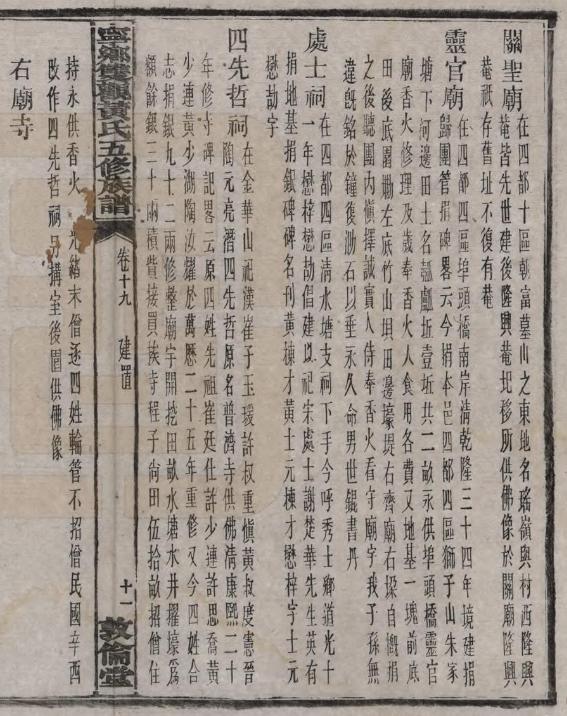 關聖廟在四都十區朝富墓山之東地名瑤嶺與材西隆興
菴皆先世建後隆興菴圯移所供佛像於關廟隆興
菴祇存舊址不復有菴
靈官廟在四都四區埠頭橋南岸清乾隆三十四年境建捐
歸團管捐碑畧云今捐本邑四都四區獅子山朱家
塘下河邊田土名瓠廬坵壹坵共二畝永供埠頭橋靈官
廟香火修理及歲奉香火人食用各費又地基一塊前底
田後底園墈左底竹山垻田邊壕堤右齊廟右圳自慨捐
之後聽團內愼擇誠實人侍奉香火看守廟宇我子孫無
違旣銘於鐘復泐石以垂永久命男世錕書丹
處士祠在四都四區清水塘支祠下手今呼秀士鄉道光十
一年懋梓懋勛倡建以祀宋處士謝楚華先生英有
捐地基捐銀碑碑名刊黃棟才黃士元棟才懋梓字士元
懋勛字
四先哲祠在金華山祀漢崔子玉瑗許叔重愼黃叔度憲晉
陶元亮潛四先哲原名普濟寺供佛清康熙二十
年修寺碑記畧云原四姓先祖崔廷仕許少連許思喬黃
少連黃少湖陶汝耀於萬歷二十五年重修又今四姓合
志捐銀九十二兩修整廟宇開挖田畝水塘水井擢壕爲
額餘銀三十兩積貲接買挨寺程子尙田伍拾畝招僧住
寧鄉雙觀黃氏五修族譜
卷十九
建置
十一
敦倫堂
持永供香火
光緒末僧逐四姓輪管不招僧民國辛酉
改作四先哲祠
講室後園供佛像
右廟寺